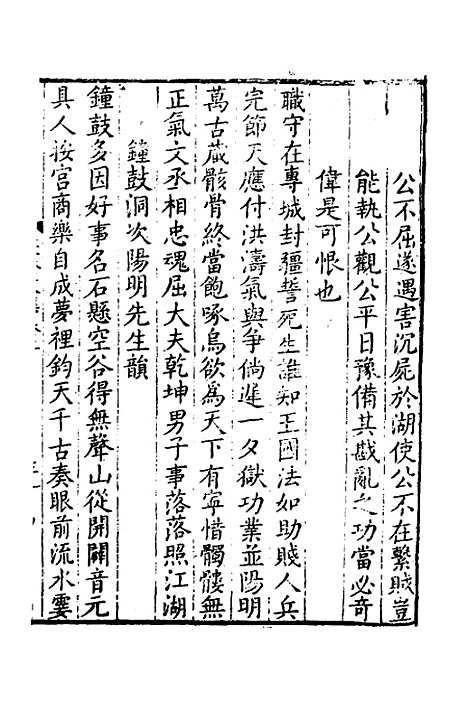 公不屈遂遇害沉屍於湖使公不在繫賊豈
能執公觀公平日豫備其戡亂之功當必奇
偉是可恨也
職守在專城封疆誓死生誰知王國法如助賤人兵
完節天應付洪濤氣與爭倘遲一夕獄功業並陽明
萬古葴骸骨終當飽啄烏欲為天下有寧惜髑髏無
正氣文丞相忠魂屈大夫乾坤男子事落落照江湖
鐘鼓洞次陽明先生韻
鐘鼓多因好事名石懸空谷得無聲山從開闢音元
具人按宮商樂自成夢裡鈞天千古奏眼前流水雲